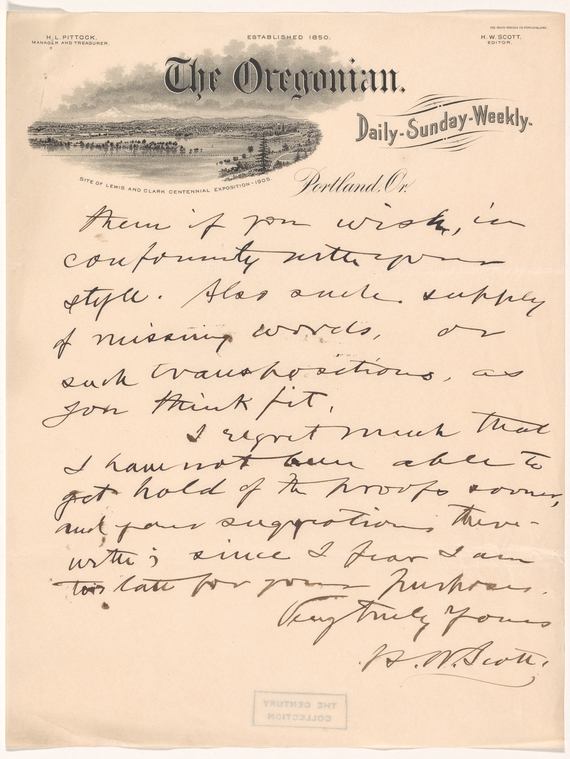 H. L. PITTOCK.
MANAGER AND TREASURER.
ESTABLISHED 1850.
H. W. SCOTT.
EDITOR.
The Oregonian.
Daily-Sunday-Weekly.
SITE OF LEWIS AND CLARK CENTENNIAL EXPOSITION-1905.
Portland, Or.
them if you wish, in
conformity with your
style. Also such supply
of missing words, or
such transpositions, as
you think fit.
I regret much that
I have not been able to
get hold of the proofs sooner,
and your suggestions there-
with; since I fear I am
too late for your purposes.
Very truly yours
H. W. Scott.
THE CENTURY
COLLECTION